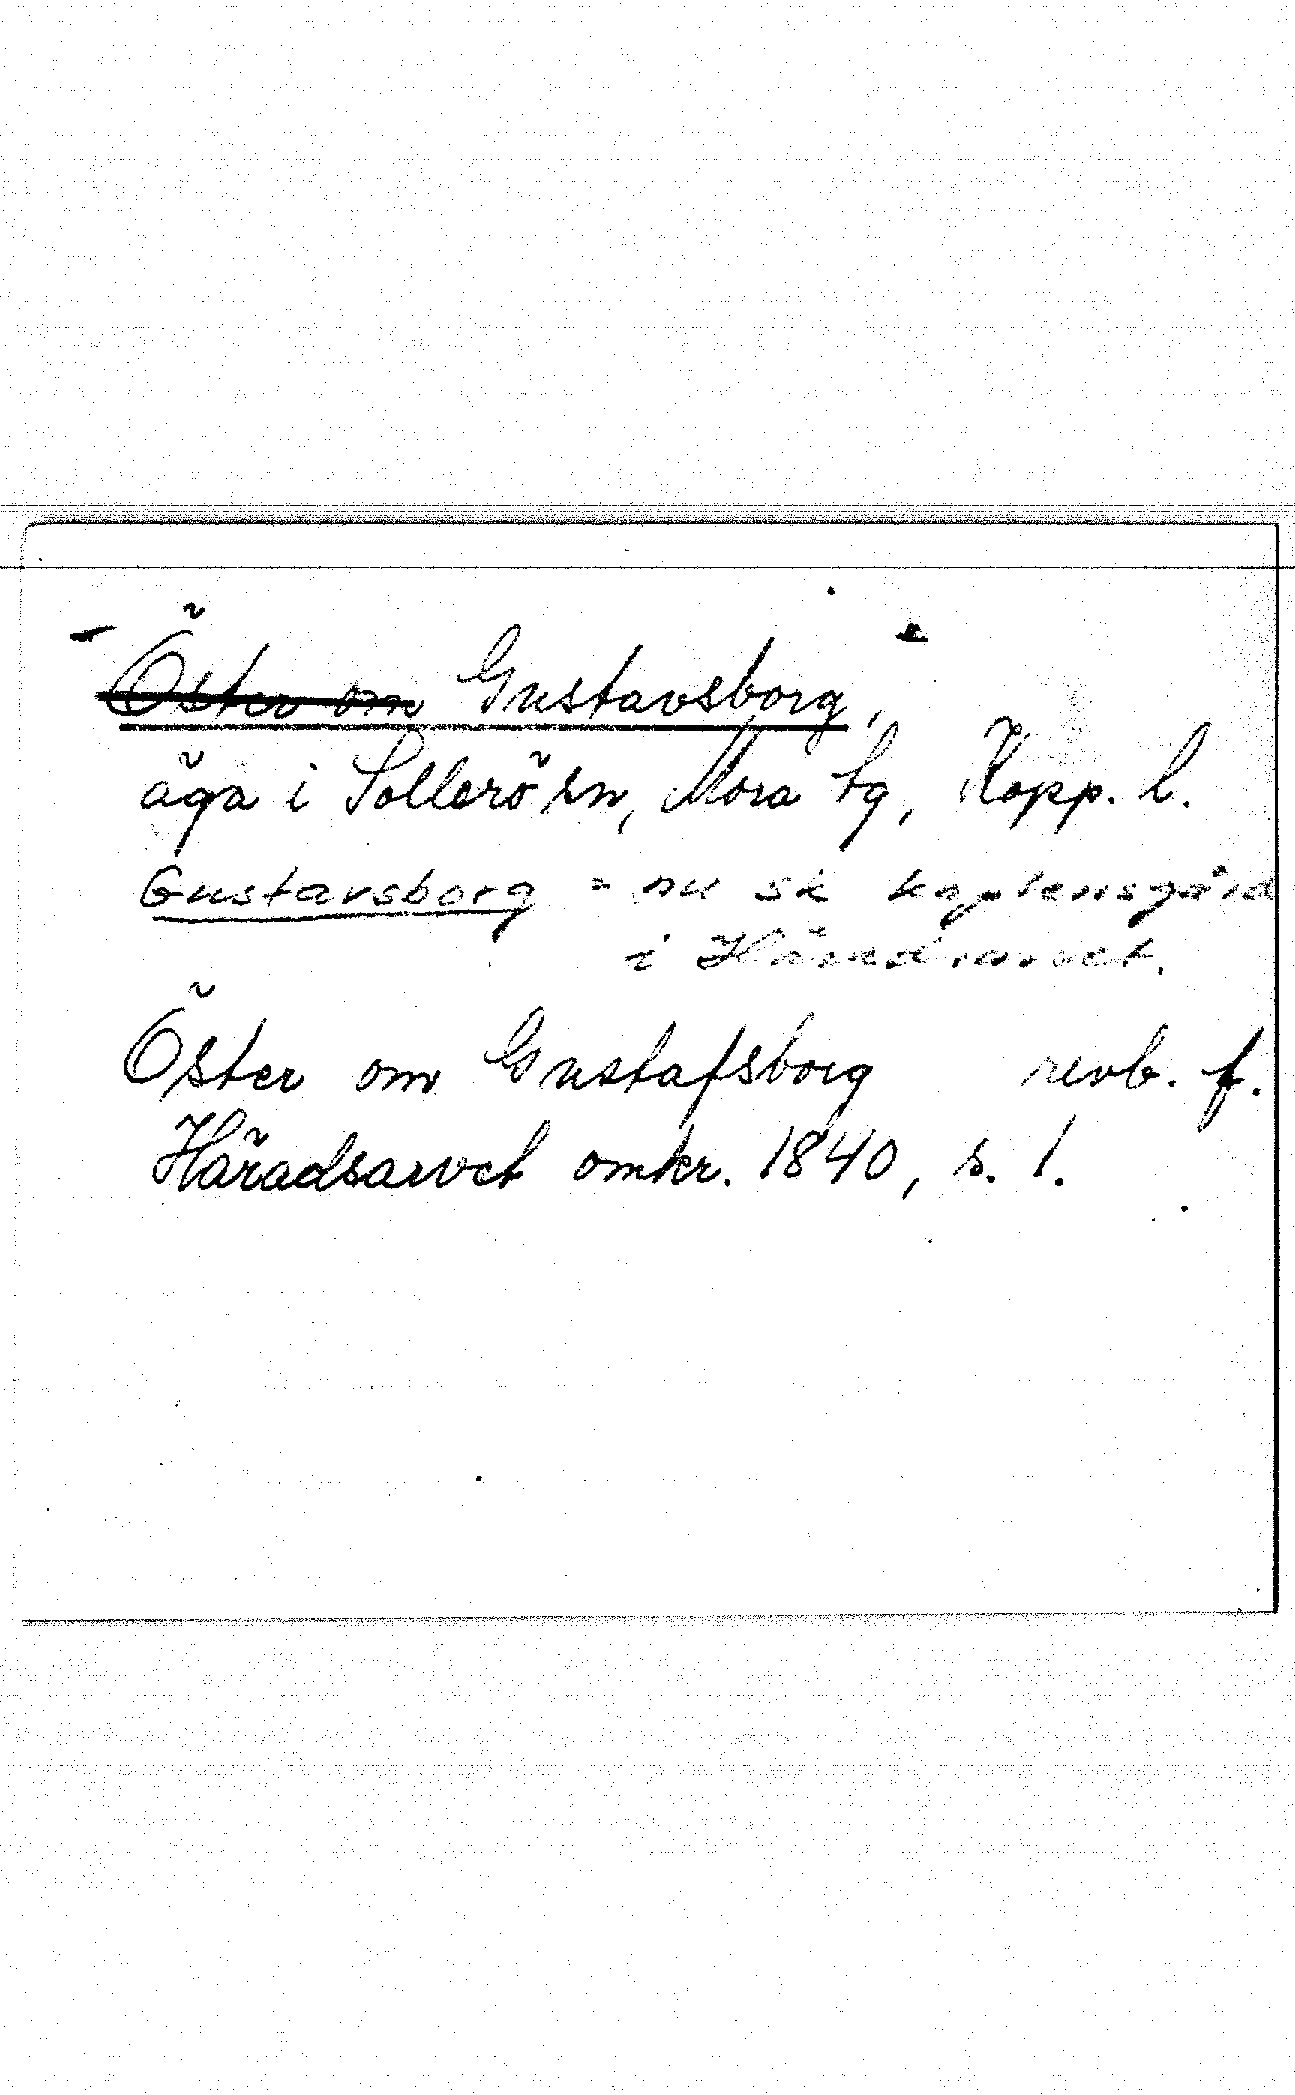 Öster om Gustavsborg,
äga i Sollerö sn, Mora tg, Kopp. l.
Gustavsborg = nu sk kaplensgård
i Häradsarvet.
Öster om Gustafsborg revb. f.
Häradsarvet omkr. 1840, s. 1.